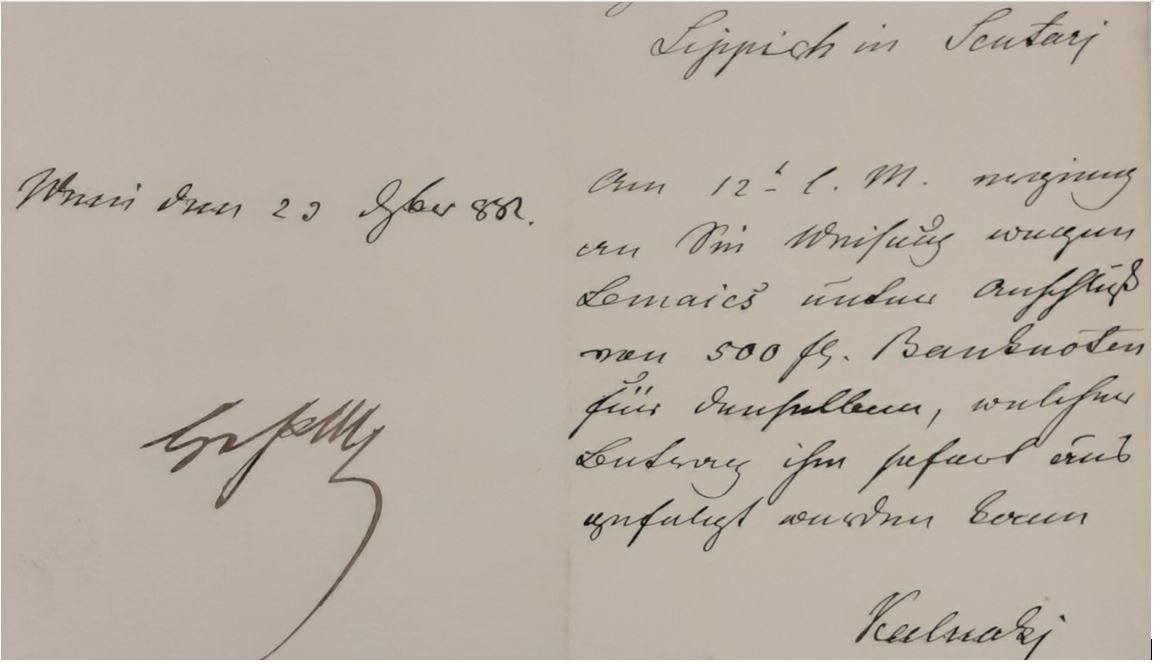 Lippich in Scutari
Wien den 23 882.
Am 12t l. M. erging
an Sie Weisung wegen
Lemaics unter Anschluß
von 500 fl. Banknoten
für denselben, welcher
Betrag ihm sofort aus
gefolgt werden kann
Kalnoky